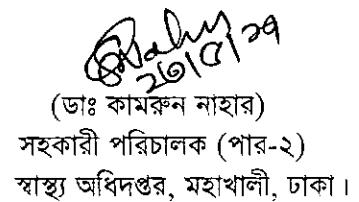 (ডাঃ কামরুন নাহার)
সহকারী পরিচালক (পার-২)
স্বাস্থ্য অধিদপ্তর, মহাখালী, ঢাকা।